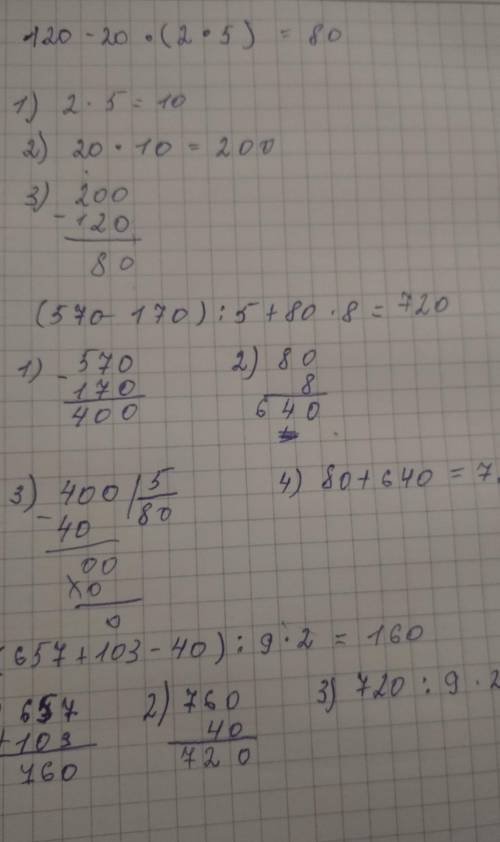 120 - 20 · (2 · 5) = 80
1) 2 · 5 = 10
2) 20 · 10 = 200
3) 200
- 120
80
(570 - 170) : 5 + 80 · 8 = 720
1) 570
- 170
400
2) 80
8
640
3) 400 | 5
- 40 80
00
0
0
4) 80 + 640 = 7
(657 + 103 - 40) : 9 · 2 = 160
657
+ 103
760
2) 760
40
720
3) 720 : 9 · 2